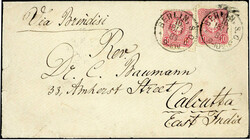 Via Brindisi
BERLIN, S.
BERLIN, S.
Rev.
Dr. C. Baumann
33, Amherst Street
Calcutta
East India